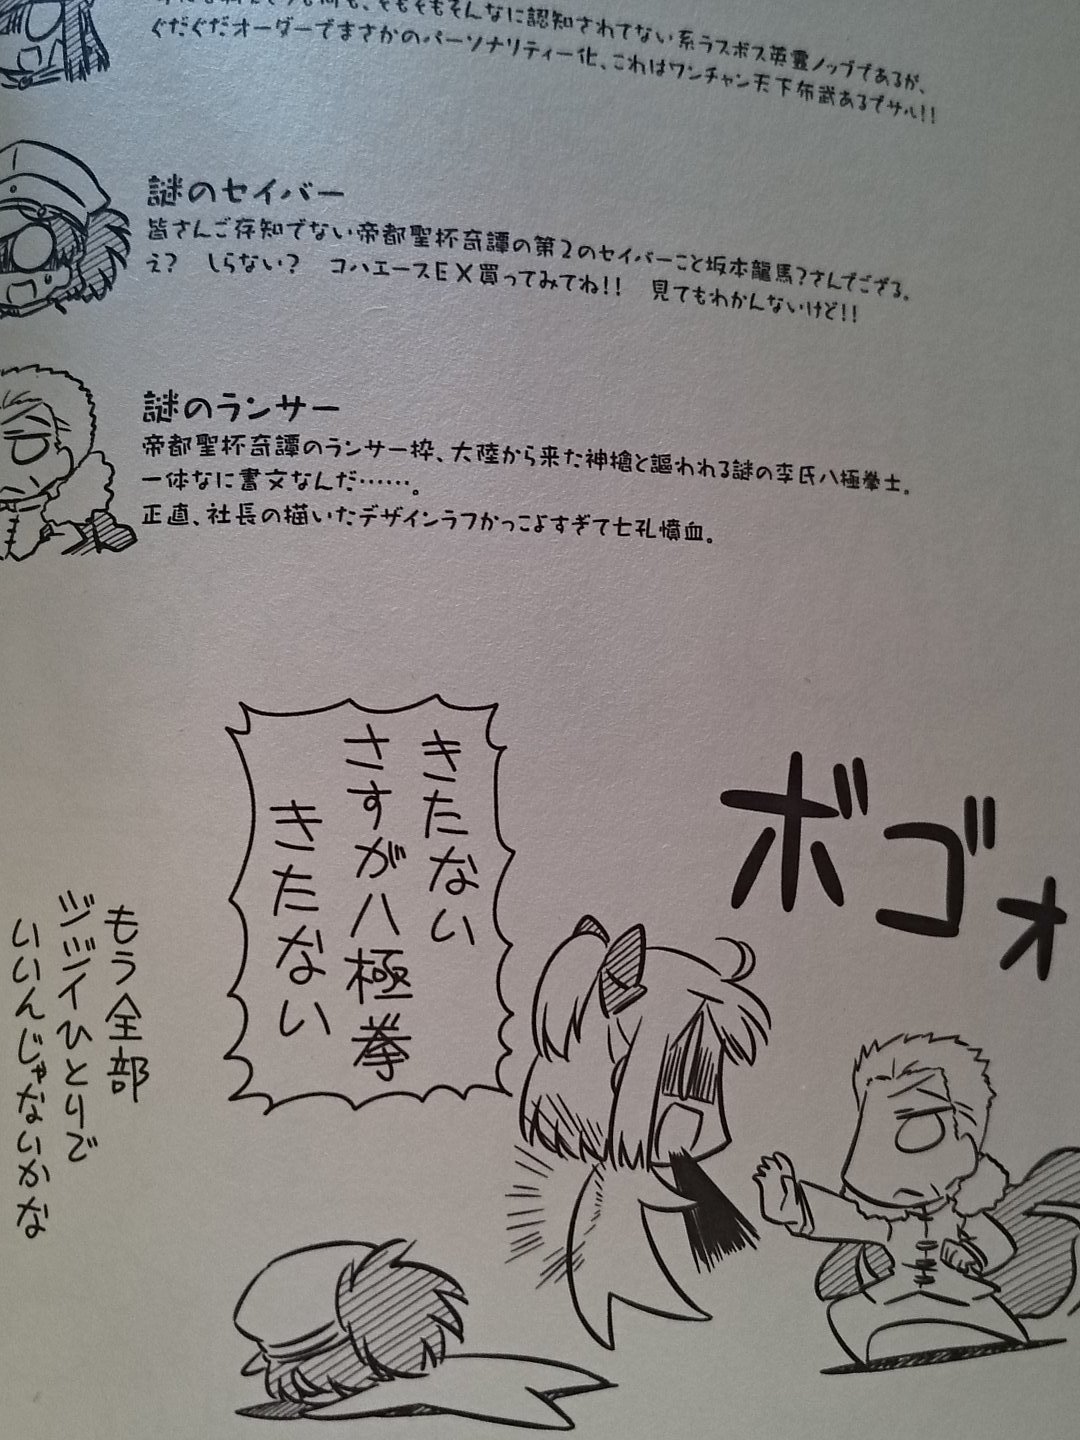 そもそもそんなに認知されてない系ラスボス英霊ノッブであるが、
ぐだぐだオーダーでまさかのパーソナリティー化、これはワンチャン天下布武あるでサル!!
謎のセイバー
皆さんご存知でない帝都聖杯奇譚の第2のセイバーこと坂本龍馬?さんでござる。
え? しらない? コハエースEX買ってみてね!! 見てもわかんないけど!!
謎のランサー
帝都聖杯奇譚のランサー枠、大陸から来た神槍と謳われる謎の李氏八極拳士。
一体なに書文なんだ……。
正直、社長の描いたデザインラフかっこよすぎて七孔憤血。
ボゴォ
きたない
さすが八極拳
きたない
もう全部
ジジイひとりで
いいんじゃないかな